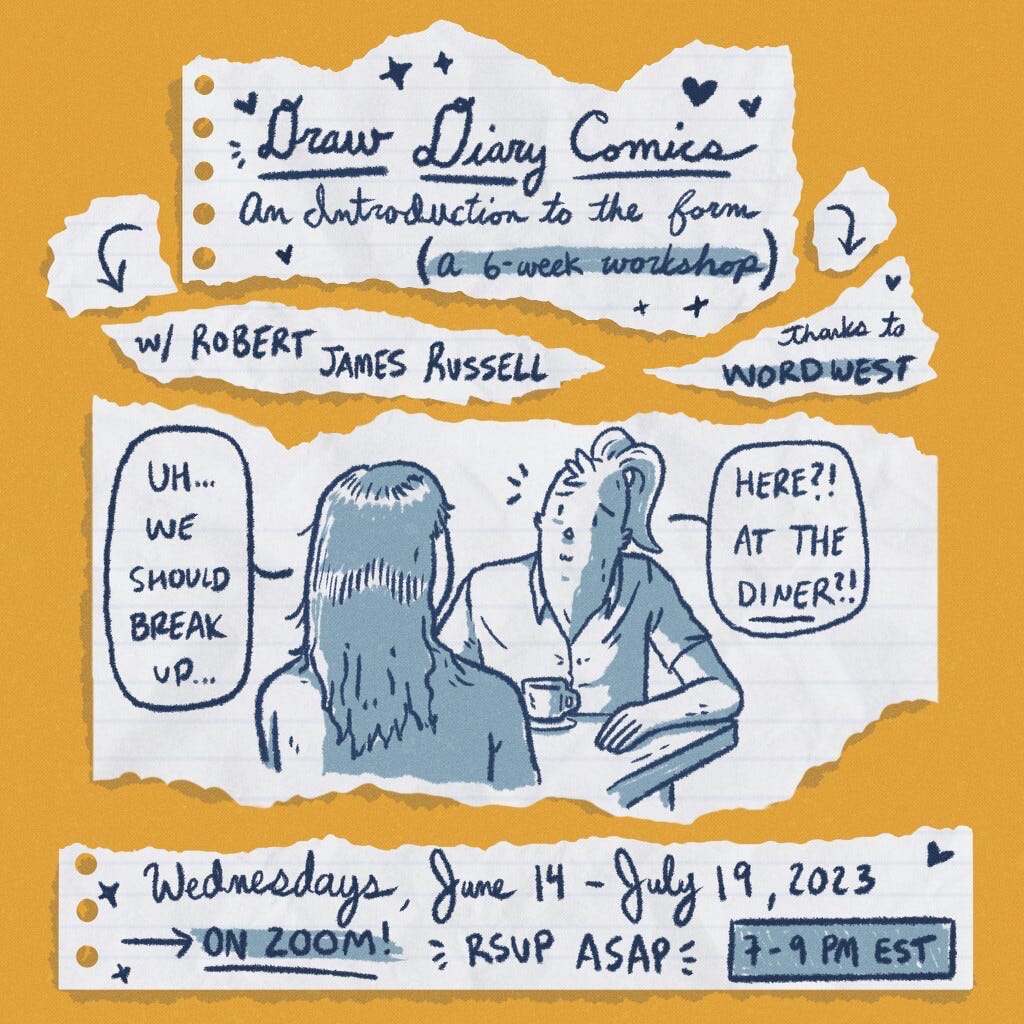 Draw Diary Comics
An Introduction to the form
(a 6-week workshop)
w/ ROBERT JAMES RUSSELL
thanks to
WORDWEST
UH...
WE
SHOULD
BREAK
UP...
HERE?!
AT THE
DINER?!
Wednesdays, June 14 - July 19, 2023
ON ZOOM! RSVP ASAP 7-9 PM EST